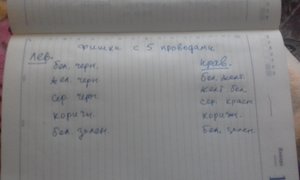 Фишки с 5 проводами
Лев. Прав.
бел. черн. бел. желт.
жел. черн желт бел.
сер. черн. сер. красн.
коричн. коричн.
бел. зелен. бел. зелен.